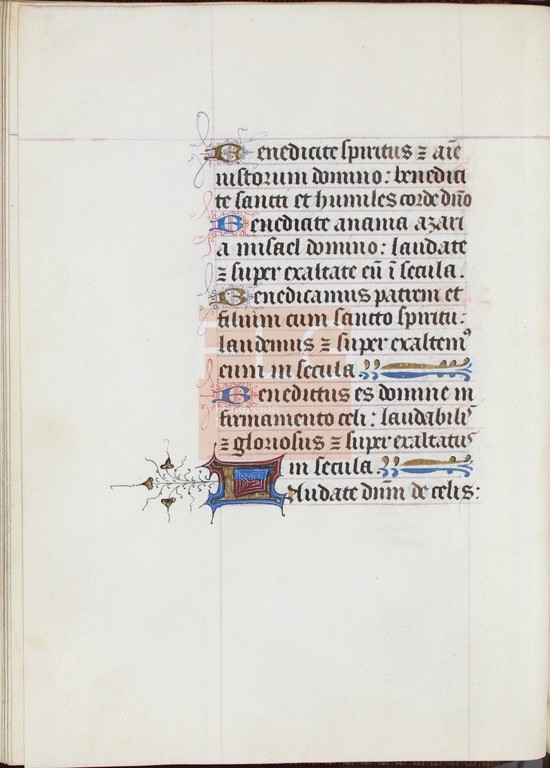 Benedicite spiritus ⁊ aīe
iustorum domino: benedici
te sancti et humiles corde dño
Benedicite anania azari
a misael domino: laudate
⁊ super exaltate eū ī secula.
Benedicamus patrem et
filium cum sancto spiritu:
laudemus ⁊ super exaltemꝰ
eum in secula
Benedictus es domine in
firmamento celi: laudabilꝭ
⁊ gloriosus ⁊ super exaltatus
in secula
Laudate dñm de celis: